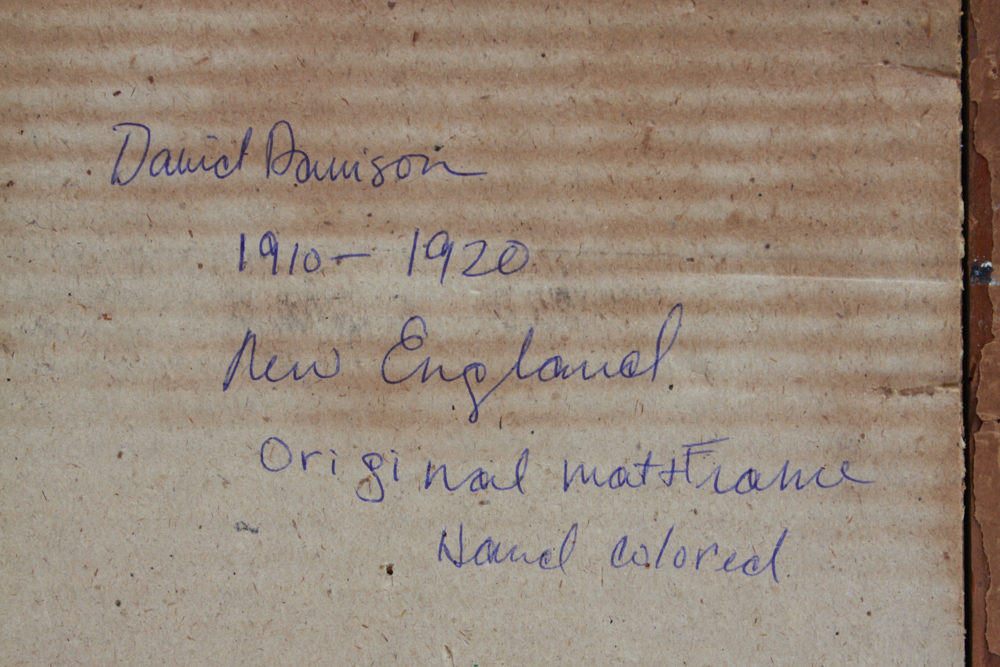 David Davison
1910 – 1920
New England
Original mat + Frame
Hand colored